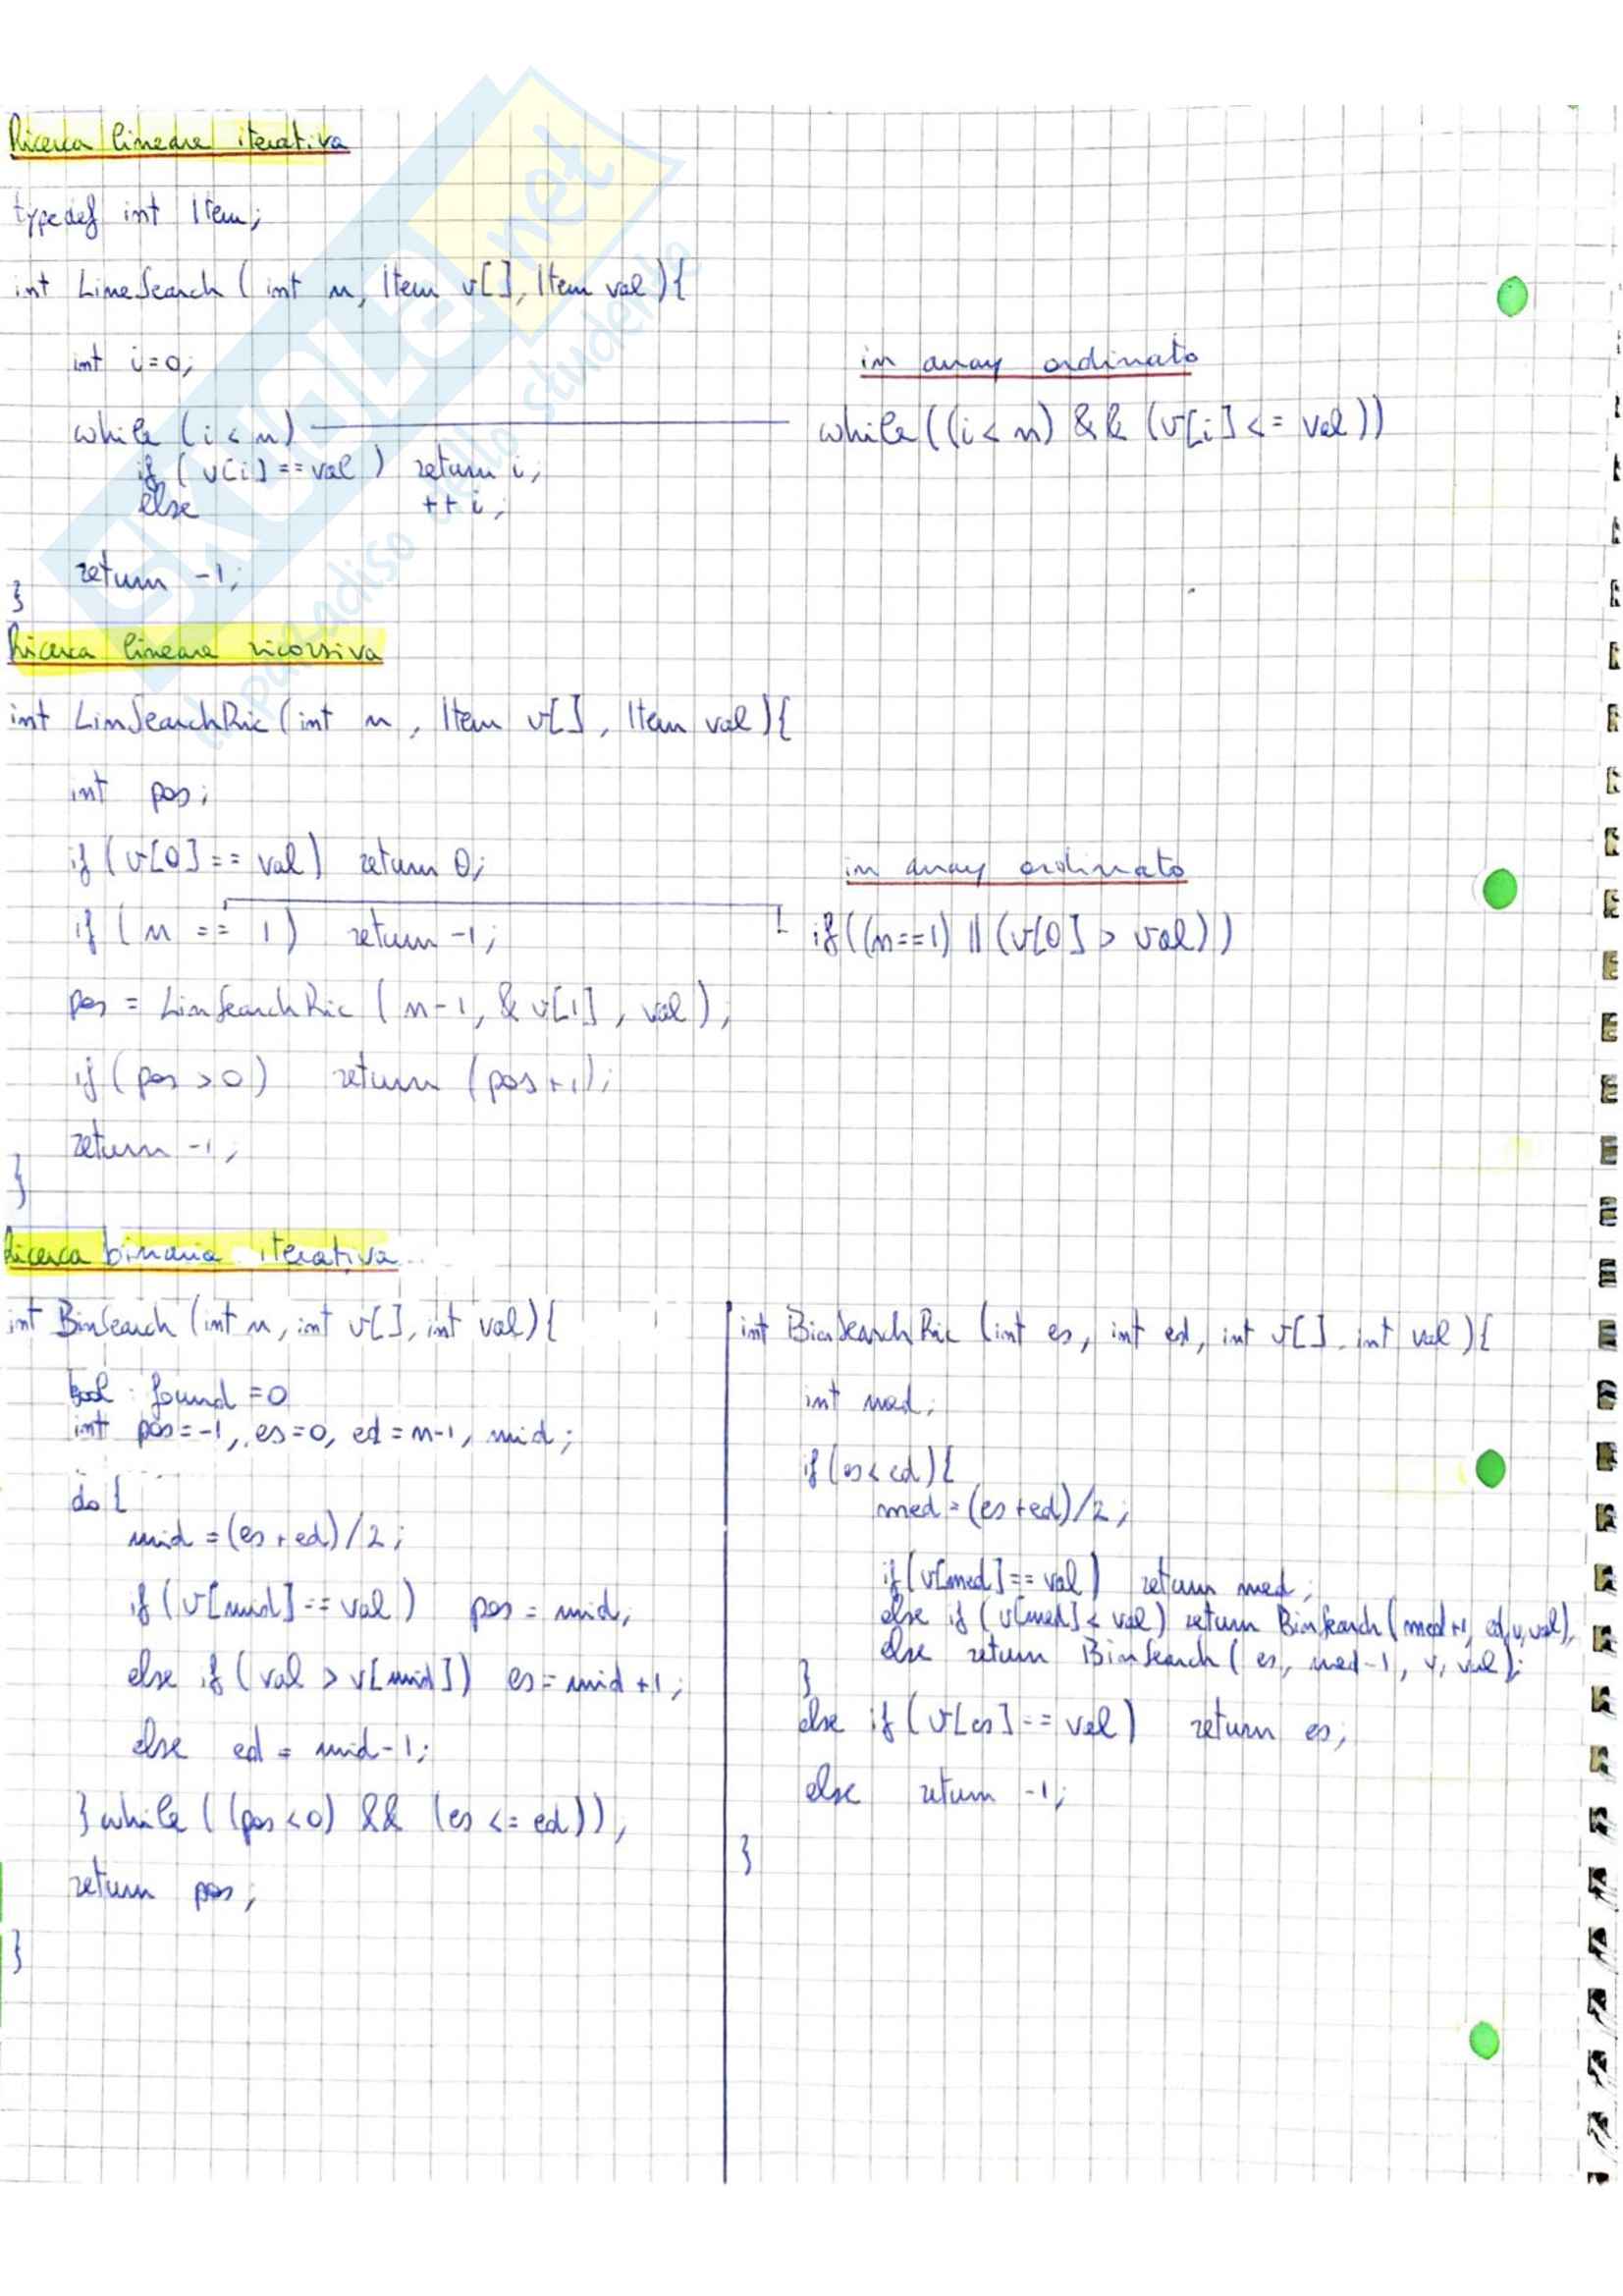 Ricerca lineare iterativa
typedef int Item;
int LineSearch ( int n, Item v[], Item val){
int i=0;
in array ordinato
while (i < n)
while((i< n) && (v[i] <= val))
if ( v[i] == val ) return i;
else ++ i;
return -1;
}
Ricerca lineare ricorsiva
int LinSearchRic (int n, Item v[], Item val){
int pos;
if (v[0] == val) return 0;
in array ordinato
if (n == 1) return -1;
if((n==1) || (v[0] > val))
pos = LinSearchRic ( n-1, & v[1], val);
if (pos >0) return (pos+1);
return -1;
}
Ricerca binaria iterativa
int BinSearch (int n, int v[], int val){
bool found =0
int pos=-1, es=0, ed = n-1, mid;
do {
mid = (es + ed)/2;
if (v[mid] == val) pos = mid;
else if (val > v[mid]) es = mid +1;
else ed = mid-1;
} while ((pos <0) && (es <= ed));
return pos;
}
int BinSearchRic (int es, int ed, int v[], int val){
int med;
if (es< ed){
med = (es+ed)/2;
if (v[med] == val) return med;
else if (v[med] < val) return BinSearch (med+1, ed,v,val);
else return BinSearch ( es, med-1, v, val);
}
else if (v[es] == val) return es;
else return -1;
}
SKUOLA.net
il paradiso dello studente